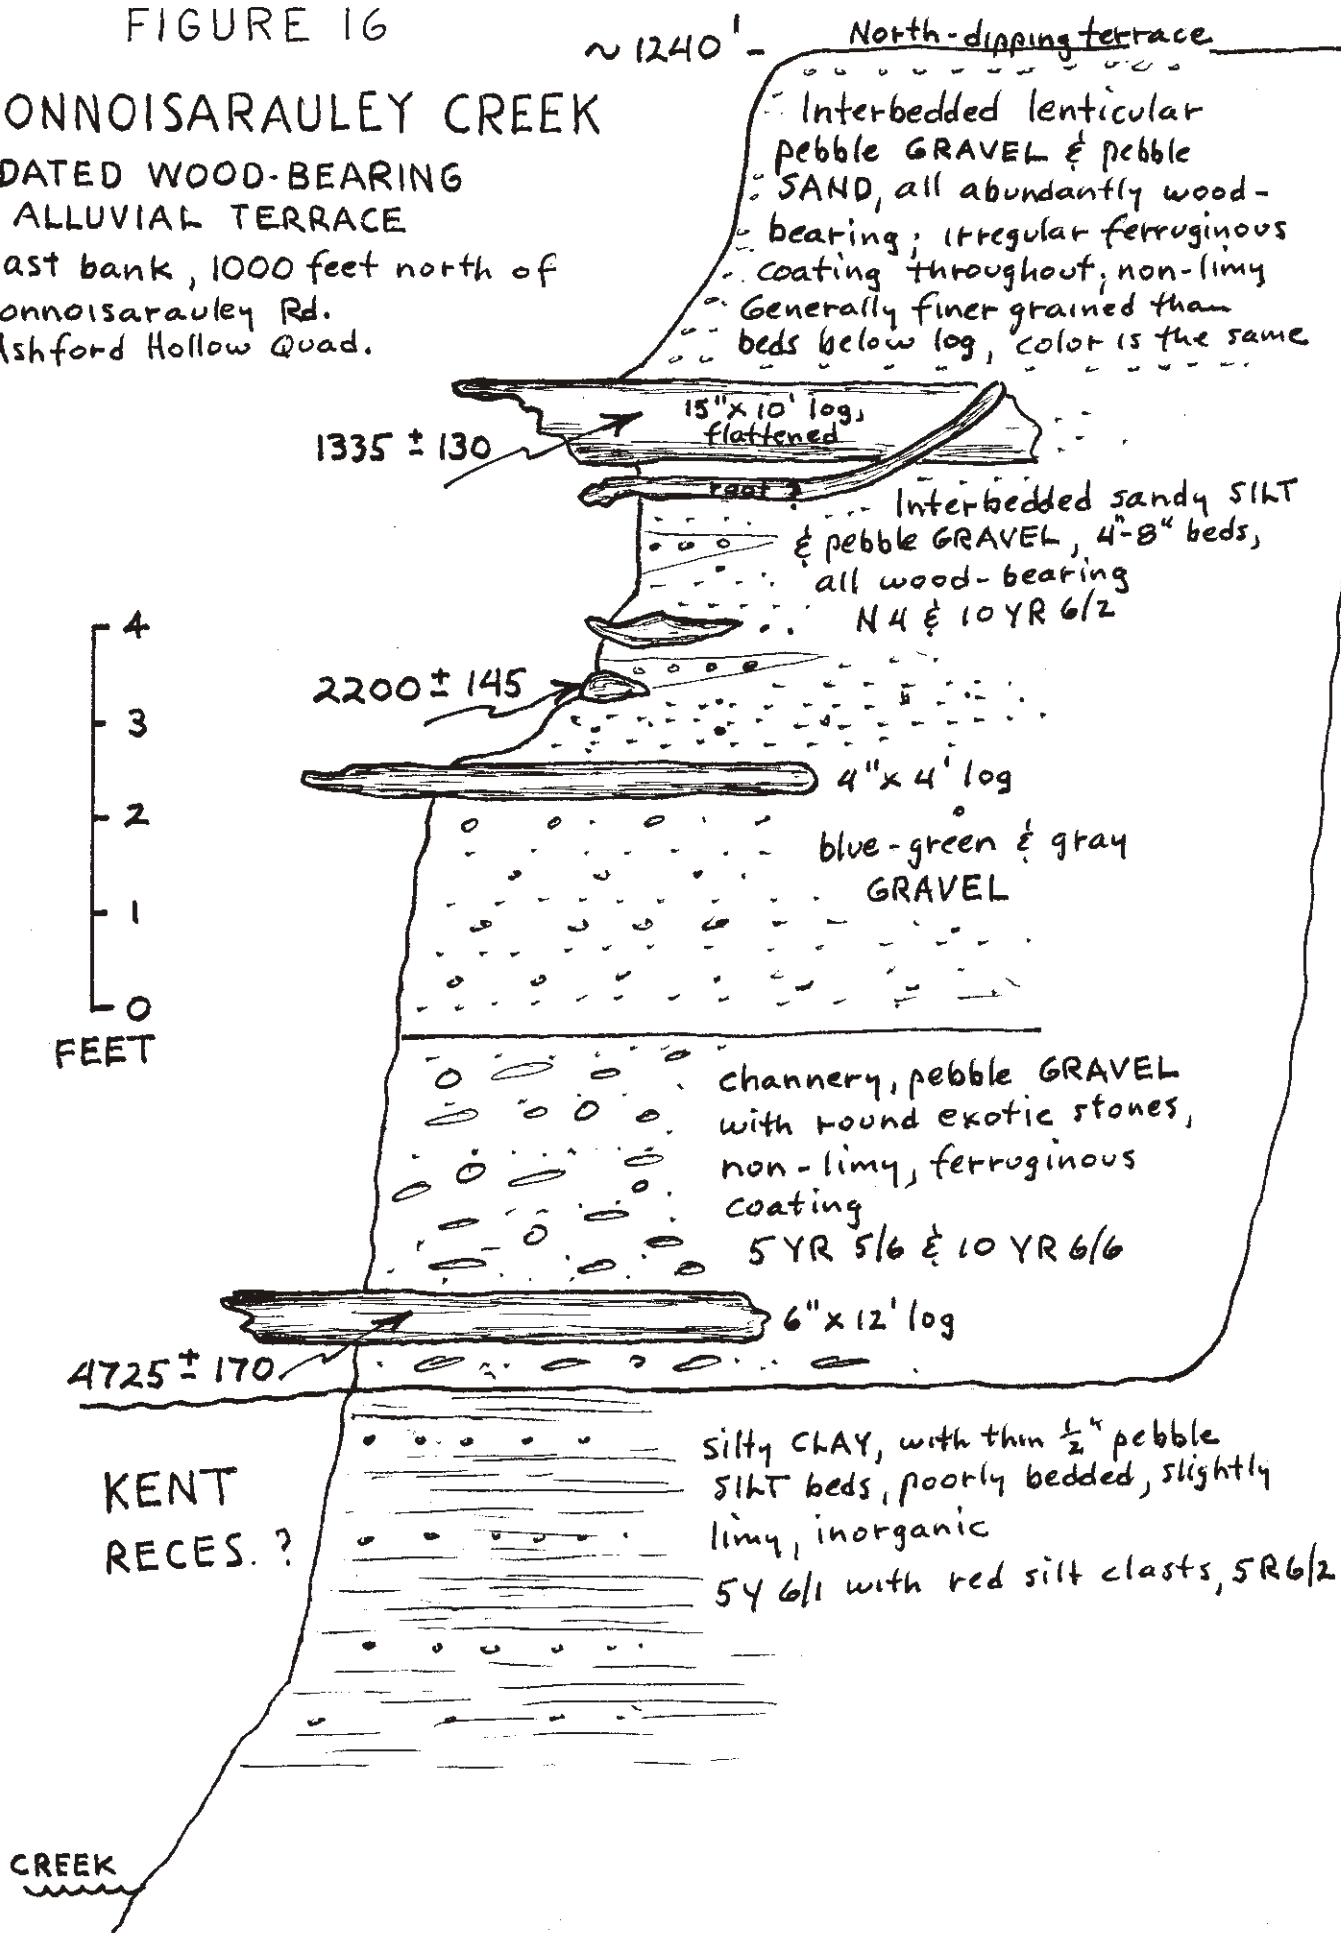 FIGURE 16
ONNOISARAULEY CREEK
DATED WOOD-BEARING
ALLUVIAL TERRACE
ast bank, 1000 feet north of
onnoisarauley Rd.
Ashford Hollow Quad.
~ 1240' -
North-dipping terrace
Interbedded lenticular
pebble GRAVEL & pebble
SAND, all abundantly wood-
bearing; irregular ferruginous
coating throughout; non-limy
Generally finer grained than
beds below log, color is the same
15" x 10' log,
flattened
1335 ± 130
root ?
Interbedded sandy SILT
& pebble GRAVEL, 4"-8" beds,
all wood-bearing
N4 & 10 YR 6/2
4
3
2
1
0
FEET
2200 ± 145
4" x 4' log
blue-green & gray
GRAVEL
channery, pebble GRAVEL
with round exotic stones,
non-limy, ferruginous
coating
5 YR 5/6 & 10 YR 6/6
6" x 12' log
4725 ± 170
KENT
RECES. ?
silty CLAY, with thin 1/2" pebble
SILT beds, poorly bedded, slightly
limy, inorganic
5Y 6/1 with red silt clasts, 5R6/2
CREEK